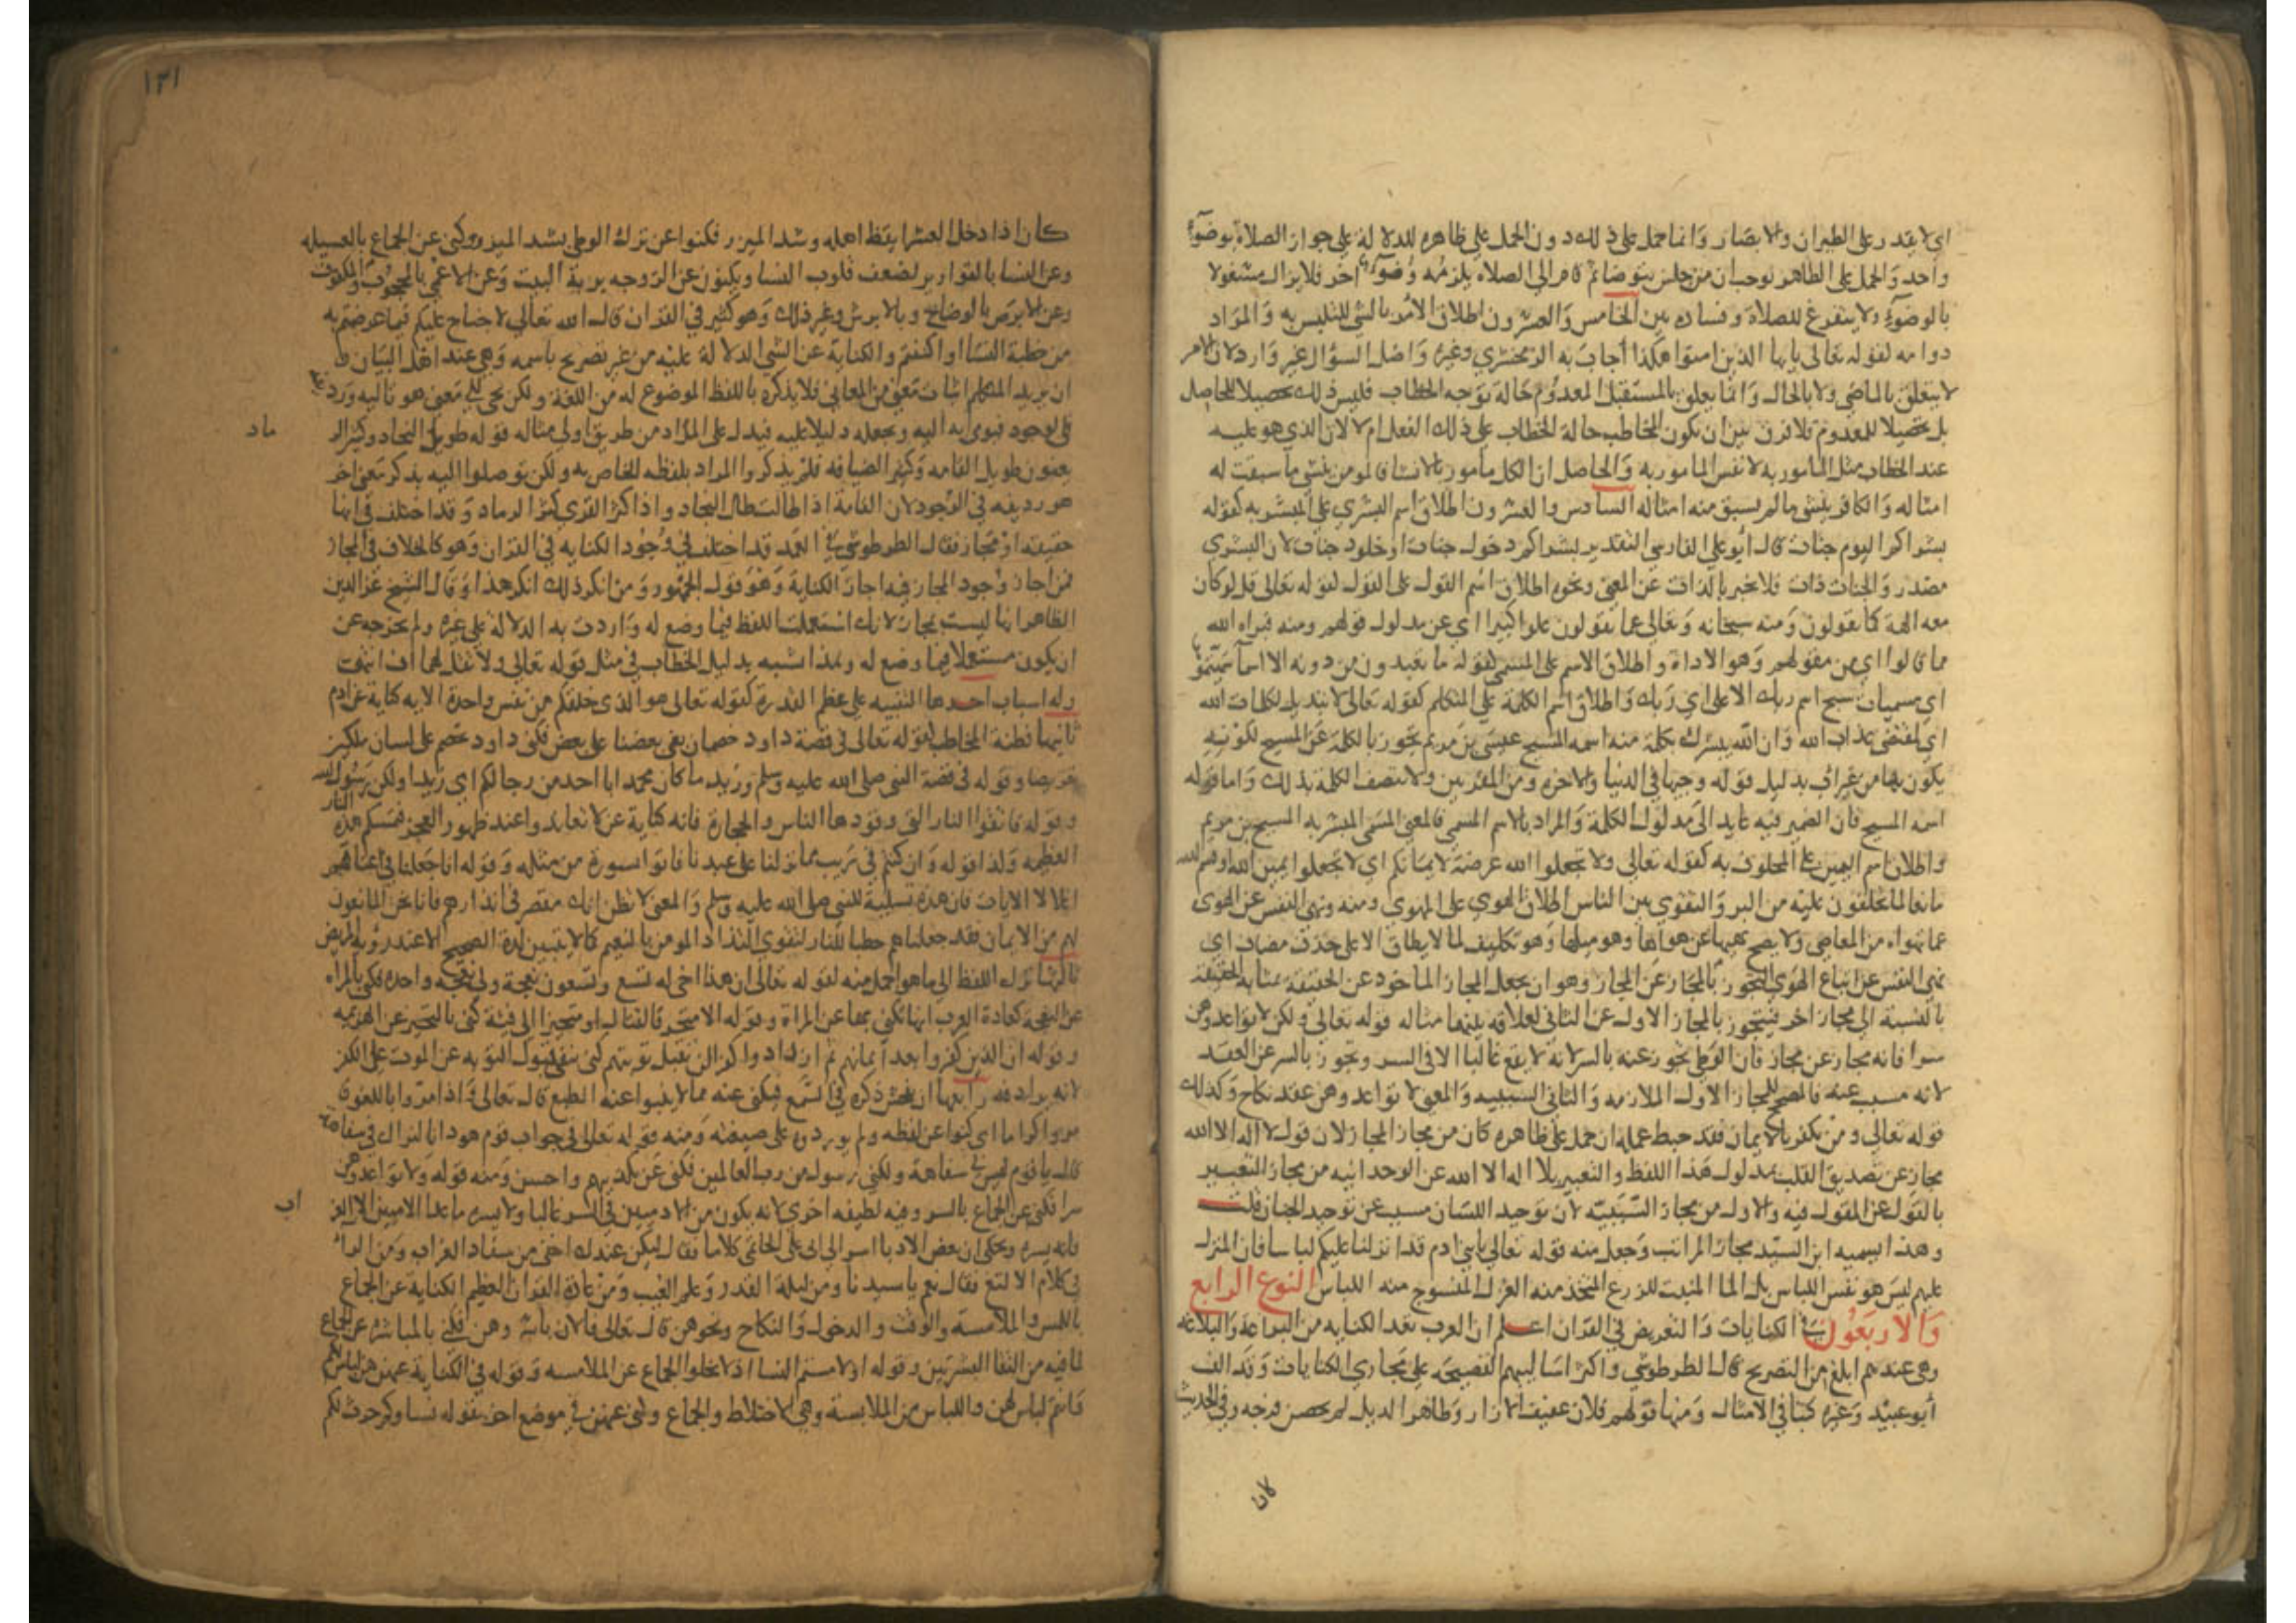 اي لا يقدر على الطيران والابصار وانما حمل على ذلك دون الحمل على ظاهره للدلالة على جواز الصلاة بوضوء
واحد والحمل على الظاهر يوجب ان من جلس يتوضا ثم قام الى الصلاه يلزمه وضوء اخر فلا يزال مشغولا
بالوضوء ولا يتفرغ للصلاة وفساده بين الخامس والعشرون اطلاق الامر بالشي للتلبس به والمراد
دوامه لقوله تعالى يايها الذين امنوا هكذا أجاب به الزمخشري وغيره واصل السؤال غير وارد لان الامر
لا يتعلق بالماضي ولا بالحال وانما يعلق بالمستقبل المعدوم حالة توجه الخطاب فليس ذلك تحصيلا للحاصل
بل تحصيلا للمعدوم فلا فرق بين ان يكون المخاطب حالة الخطاب على ذلك الفعل ام لا لان الذي هو عليه
عند الخطاب مثل المامور به لا نفس المامور به والحاصل ان الكل مامور بالانشا فالمومن ينشي ما سبقت له
امثاله والكافر ينشي ما لم يسبق منه امثاله السادس والعشرون اطلاق اسم البشري على المبشر به كقوله
بشراكم اليوم جنات قال أبو علي الفارسي التقدير بشراكم دخول جنات او خلود جنات لان البشري
مصدر والجنات ذات فلا يخبر بالذات عن المعني ونحوه اطلاق اسم القول على المقول لقوله تعالى قل لو كان
معه الهة كما يقولون ومنه سبحانه وتعالى عما يقولون علوا كبيرا اي عن مدلول قولهم ومنه فبراه الله
مما قالوا اي من مقولهم وهو الاداة واطلاق الاسم على المسمى لقوله ما تعبدون من دونه الا اسما سميتموها
اي مسميات سبح اسم ربك الاعلى اي ربك واطلاق اسم الكلمة على المتكلم كقوله تعالى لا تبديل لكلمات الله
اي لمقتضي عذاب الله وان الله يبشرك بكلمة منه اسمه المسيح عيسى بن مريم تجوز بالكلمة عن المسيح لكونه
يكون بها من غير اب بدليل قوله وجيها في الدنيا والاخره ومن المقربين ولا تتصف الكلمة بذلك واما قوله
اسمه المسيح فان الضمير فيه عايد الى مدلول الكلمة والمراد بالاسم المسمي فالمعني المسمى المبشر به المسيح بن مريم
واطلاق اسم اليمين على المحلوف به كقوله تعالى ولا تجعلوا الله عرضة لايمانكم اي لا تجعلوا يمين الله او قسم الله
مانعا لما تحلفون عليه من البر والتقوي بين الناس اطلاق الهوي على المهوي ومنه ونهى النفس عن الهوى
عما تهواه من المعاصي ولا يصح نهيها عن هواها وهو ميلها وهو تكليف لما لا يطاق الا على حذف مضاف اي
نهي النفس عن اتباع الهوي التجوز بالمجاز عن المجاز وهو ان يجعل المجاز الماخوذ عن الحقيقة بمثابة الحقيقة
بالنسبة الى مجاز اخر فيتجوز بالمجاز الاول عن الثاني لعلاقه بينهما مثاله قوله تعالى ولكن لا تواعدوهن
سرا فانه مجاز عن مجاز فان الوطي تجوز عنه بالسر لانه لا يقع غالبا الا في السر وتجوز بالسر عن العقد
لانه مسبب عنه فالمصحح للمجاز الاول الملازمه والثاني السببيه والمعني لا تواعدوهن عقد نكاح وكذلك
قوله تعالى ومن يكفر بالايمان فقد حبط عمله ان حمل على ظاهره كان من مجاز المجاز لان قول لا اله الا الله
مجاز عن تصديق القلب بمدلول هذا اللفظ والتعبير بلا اله الا الله عن الوحدانيه من مجاز التعبير
بالقول عن المقول فيه والاول من مجاز السببيه لان توحيد اللسان مسبب عن توحيد الجنان قلت
وهذا يسميه ابن السيد مجاز المراتب وجعل منه قوله تعالى يابني ادم قد انزلنا عليكم لباسا فان المنزل
عليهم ليس هو نفس اللباس بل الما المنبت للزرع المتخذ منه الغزل المنسوج منه اللباس النوع الرابع
والاربعون في الكنايات والتعريض في القران اعلم ان العرب تعد الكنايه من البراعة والبلاغة
وهي عندهم ابلغ من التصريح قال الطرطوشي واكثر اساليبهم الفصيحه على مجاري الكنايات وقد الف
أبو عبيد وغيره كتبا في الامثال ومنها قولهم فلان عفيف الازار وطاهر الذيل لم يحصن فرجه وفي الحديث
لان
١٢١
كان اذا دخل العشر ايقظ اهله وشد الميزر فكنوا عن ترك الوطي بشد الميزر وكنى عن الجماع بالعسيله
وعن النسا بالقوارير لضعف قلوب النسا ويكنون عن الزوجه بربة البيت وعن الاعمي بالمحجوب والمكفوف
وعن الابرص بالوضاح وبالابرش وغير ذلك وهو كثير في القران قال الله تعالى لا جناح عليكم فيما عرضتم به
من خطبة النسا او اكننتم والكناية عن الشي الدلالة عليه من غير تصريح باسمه وهي عند اهل البيان
ان يريد المتكلم اثبات معني من المعاني فلا يذكره باللفظ الموضوع له من اللغة ولكن يجي الى معني هو تاليه وردفه
في الوجود فيوي به اليه ويجعله دليلا عليه فيدل على المراد من طريق اولى مثاله قولهم طويل النجاد وكثير الر
ماد
يعنون طويل القامه وكثير الضيافه فلم يذكروا المراد بلفظه الخاص به ولكن توصلوا اليه بذكر معني اخر
هو رديفه في الوجود لان القامة اذا طالت طال النجاد واذا كثر القري كثر الرماد وقد اختلف في انها
حقيقة او مجاز فقال الطرطوشي في العمد قد اختلف في وجود الكنايه في القران وهو كالخلاف في المجاز
فمن اجاز وجود المجاز فيه اجاز الكناية وهو قول الجمهور ومن انكر ذلك انكر هذا وقال الشيخ عز الدين
الظاهر انها ليست بمجاز لانك استعملت اللفظ فيما وضع له واردت به الدلالة على غيره ولم تخرجه عن
ان يكون مستعملا فيما وضع له وهذا شبيه بدليل الخطاب في مثل قوله تعالى ولا تقل لهما اف انتهت
وله اسباب احدها التنبيه على عظم القدرة كقوله تعالى هو الذي خلقكم من نفس واحدة الايه كناية عن ادم
ثانيها فطنة المخاطب لقوله تعالى في قصة داود خصمان بغي بعضنا على بعض فكنى داود بخصم على لسان ملكين
تعريضا وقوله في قصة النبي صلى الله عليه وسلم وزيد ما كان محمد ابا احد من رجالكم اي زيد ولكن رسول الله
وقوله فاتقوا النار التي وقودها الناس والحجارة فانه كناية عن لا تعاندوا عند ظهور العجز فتمسكم هذه النار
العظيمه وكذا قوله وان كنتم في ريب مما نزلنا على عبدنا فاتوا بسورة من مثله وقوله انا جعلنا في اعناقهم
اغلالا الايات فان هذه تسلية للنبي صلى الله عليه وسلم والمعني لا تظن انك مقصر في انذارهم فانا نحن المانعون
لهم من الايمان فقد جعلناهم حطبا للنار لنقوي التذاذ المومن بالنعيم كما لا تتبين لذة الصحيح الا عند رؤية المريض
ثالثها ترك اللفظ الى ما هو اجمل منه لقوله تعالى ان هذا اخي له تسع وتسعون نعجة ولي نعجة واحده فكنى بالمراه
عن النعجة كعادة العرب انها تكني بها عن المراة وقوله الا متحرفا لقتال او متحيزا الى فئة كنى بالتحيز عن الهزيمه
وقوله ان الذين كفروا بعد ايمانهم ثم ازدادوا كفرا لن تقبل توبتهم كنى بنفي قبول التوبه عن الموت على الكفر
لانه يرادفه رابعها ان يفحش ذكره في السمع فيكني عنه بما لا ينبوا عنه الطبع قال تعالى واذا مروا باللغو
مروا كراما اي كنوا عن لفظه ولم يوردوه على صيغته ومنه قوله تعالى في جواب قوم هود انا لنراك في سفاهة
قال يا قوم ليس بي سفاهة ولكني رسول من رب العالمين فكنى عن تكذيبهم واحسن ومنه قوله ولا تواعدوهن
سرا فكنى عن الجماع بالسر وفيه لطيفه اخري لانه يكون من الادميين في السر غالبا ولا يسره ما عدا الادميين الا الغر
اب
فانه يسره ويحكى ان بعض الادبا اسر الى ابي على الحاتمي كلاما فقال ليكن عندك اخفى من سفاد الغراب ومن الراء
في كلام الالثغ فقال نعم يا سيدنا ومن ليلة القدر وعلم الغيب ومن عادة القران العظيم الكناية عن الجماع
باللمس والملامسة والرفث والدخول والنكاح ونحوهن قال تعالى فالان باشروهن فكنى بالمباشره عن الجماع
لما فيه من التقا البشرتين وقوله او لامستم النسا اذ لا يخلوا الجماع عن الملامسه وقوله في الكناية عنهن هن لباس لكم
وانتم لباس لهن واللباس من الملابسة وهي الاختلاط والجماع وكنى عنهن في موضع اخر بقوله نساوكم حرث لكم